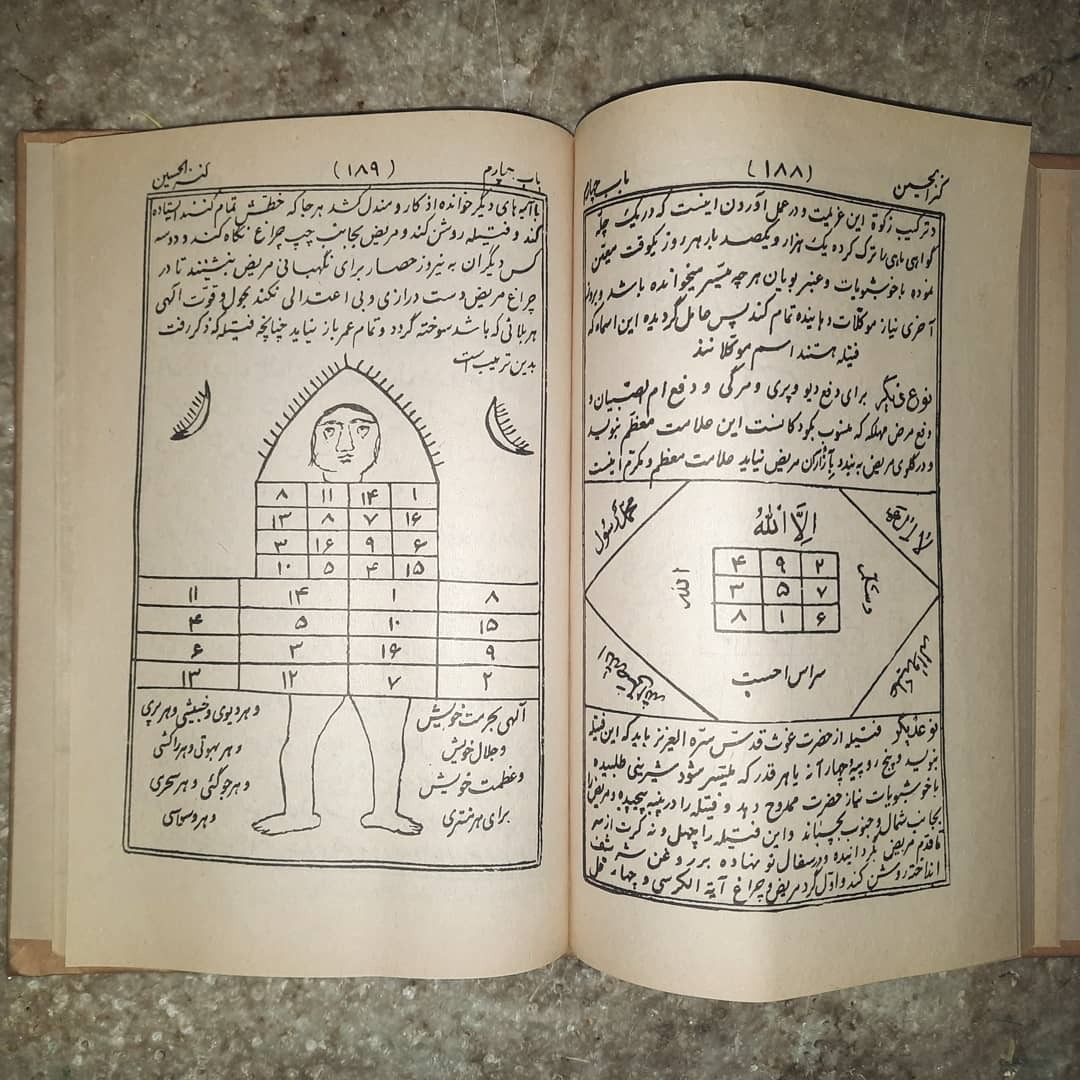 کنز الحسین (۱۸۸) باب چهارم
د ترکیب زکوة این عزیمت و در عمل آوردن اینست که در یک چلّه
گواهی ماهی را ترک کرده یک هزار و یکصد بار هر روز یکوقت معین
نموده با خوشبویات و عنبر بویان هرچه میسّر میخوانده باشد و بروز
آخری نیاز موکلات دهانیده تمام کند پس عامل گردیده این اسماء که
فتیله هستند اسم موکلانند
نوع دیگر برای دفع دیو و پری و مرگی و دفع ام الصبیان و
دفع مرض مهلکه که منسوب بکودکانست این علامت معظم بنویسد
و در گلوی مریض به بندد باز آزار کن مریض نیاید علامت معظم و مکرم اینست
لا اله
محمد رسول
الا الله
الله
۴ ۹ ۲
۳ ۵ ۷
۸ ۱ ۶
سراس احسب
نوعدیگر فتیله از حضرت غوث قدس سره العزیز باید که این فتیله
بنویسد و پنج روپیه چهار آنه یا هر قدر که میسّر شود شیرینی طلبیده
با خوشبویات نیاز حضرت ممدوح دهد و فتیله را در پنبه پیچیده و مریض را
بجانب شمال و جنوب بچسپاند و این فتیله را چهل و نه کرت از سر
تا قدم مریض گردانیده و در سفال نو نهاده بر روغن سرشف
انداخته روشن کند و اوّل گرد مریض و چراغ آیة الکرسی و چهار قل
باب چهارم (۱۸۹) کنز الحسین
با آیه های دیگر خوانده از کارد مندل کشد هر جا که خطش تمام کنند ایستاده
کند و فتیله روشن کند و مریض بجانب چپ چراغ نگاه کند و دو سه
کس دیگران به نیروز حصار برای نگهبانی مریض بنشینند تا در
چراغ مریض دست درازی و بی اعتدالی نکند بحول و قوّت الهی
هر بلائی که باشد سوخته گردد و تمام عمر باز نیاید چنانچه فتیله که ذکر رفت
بدین ترتیب است
۸ ۱۱ ۱۴ ۱
۱۳ ۸ ۷ ۱۶
۳ ۱۶ ۹ ۶
۱۰ ۵ ۴ ۱۵
۱۱ ۱۴ ۱ ۸
۴ ۵ ۱۰ ۱۵
۶ ۳ ۱۶ ۹
۱۳ ۱۲ ۷ ۲
الهی بحرمت خویش
و جلال خویش
و عظمت خویش
برای هر منتری
و هر دیوی و خبیثی و هر پری
و هر بهوتی و هر راکشی
و هر جوگئی و هر سحری
و هر وسواسی